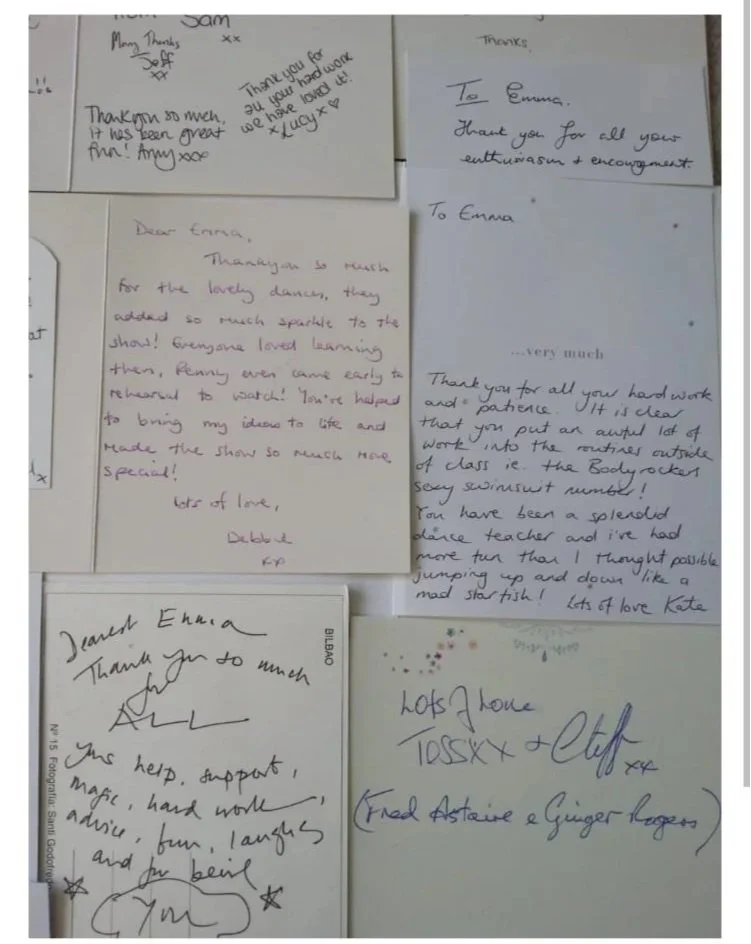 Sam
xx
Many Thanks
Jeff
xx
Thankyou so much,
It has been great
fun! Amy xxx
Thankyou for
all your hardwork
we have loved it!
x Lucy x ♡
Thanks.
To Emma.
Thank you for all your
enthusiasm + encouragement.
at
x
Dear Emma,
Thankyou so much
for the lovely dances, they
added so much sparkle to the
show! Everyone loved learning
them, Penny even came early to
rehearsal to watch! You've helped
to bring my ideas to life and
made the show so much more
special!
Lots of love,
Debbie
xx
To Emma
...very much
Thank you for all your hard work
and patience. It is clear
that you put an awful lot of
work into the routines outside
of class ie. the Bodyrockers
sexy swimsuit number!
You have been a splendid
dance teacher and i've had
more fun than I thought possible
jumping up and down like a
mad starfish! Lots of love Kate
Dearest Emma
Thank you so much
for
ALL
Your help, support,
magic, hard work,
advice, fun, laughs
and for being
You
BILBAO
Nº 15 Fotografía: Santi Godofred
Lots of love
TOSSXX + Cliff xx
(Fred Astaire e Ginger Rogers)